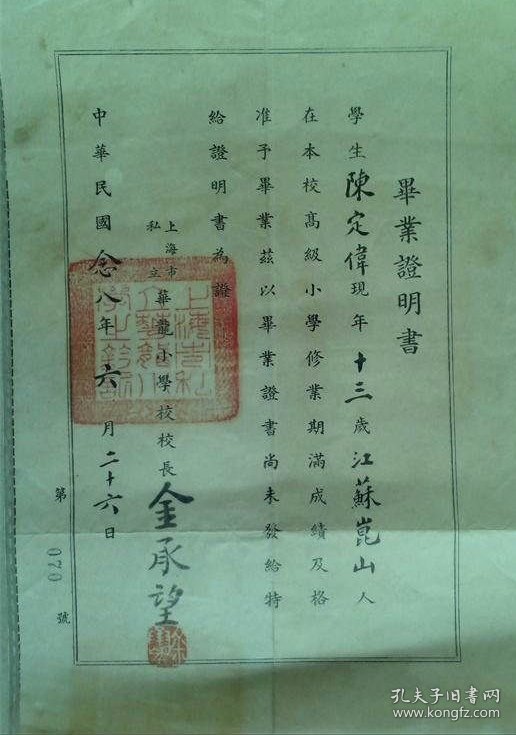 畢業證明書
學生陳定偉現年十三歲江蘇崑山人
在本校高級小學修業期滿成績及格
准予畢業茲以畢業證書尚未發給特
給證明書為證
上海市
私立
華龍小學校校長金承望
中華民國念八年六月二十六日
第070號
孔夫子旧书网
www.kongfz.com